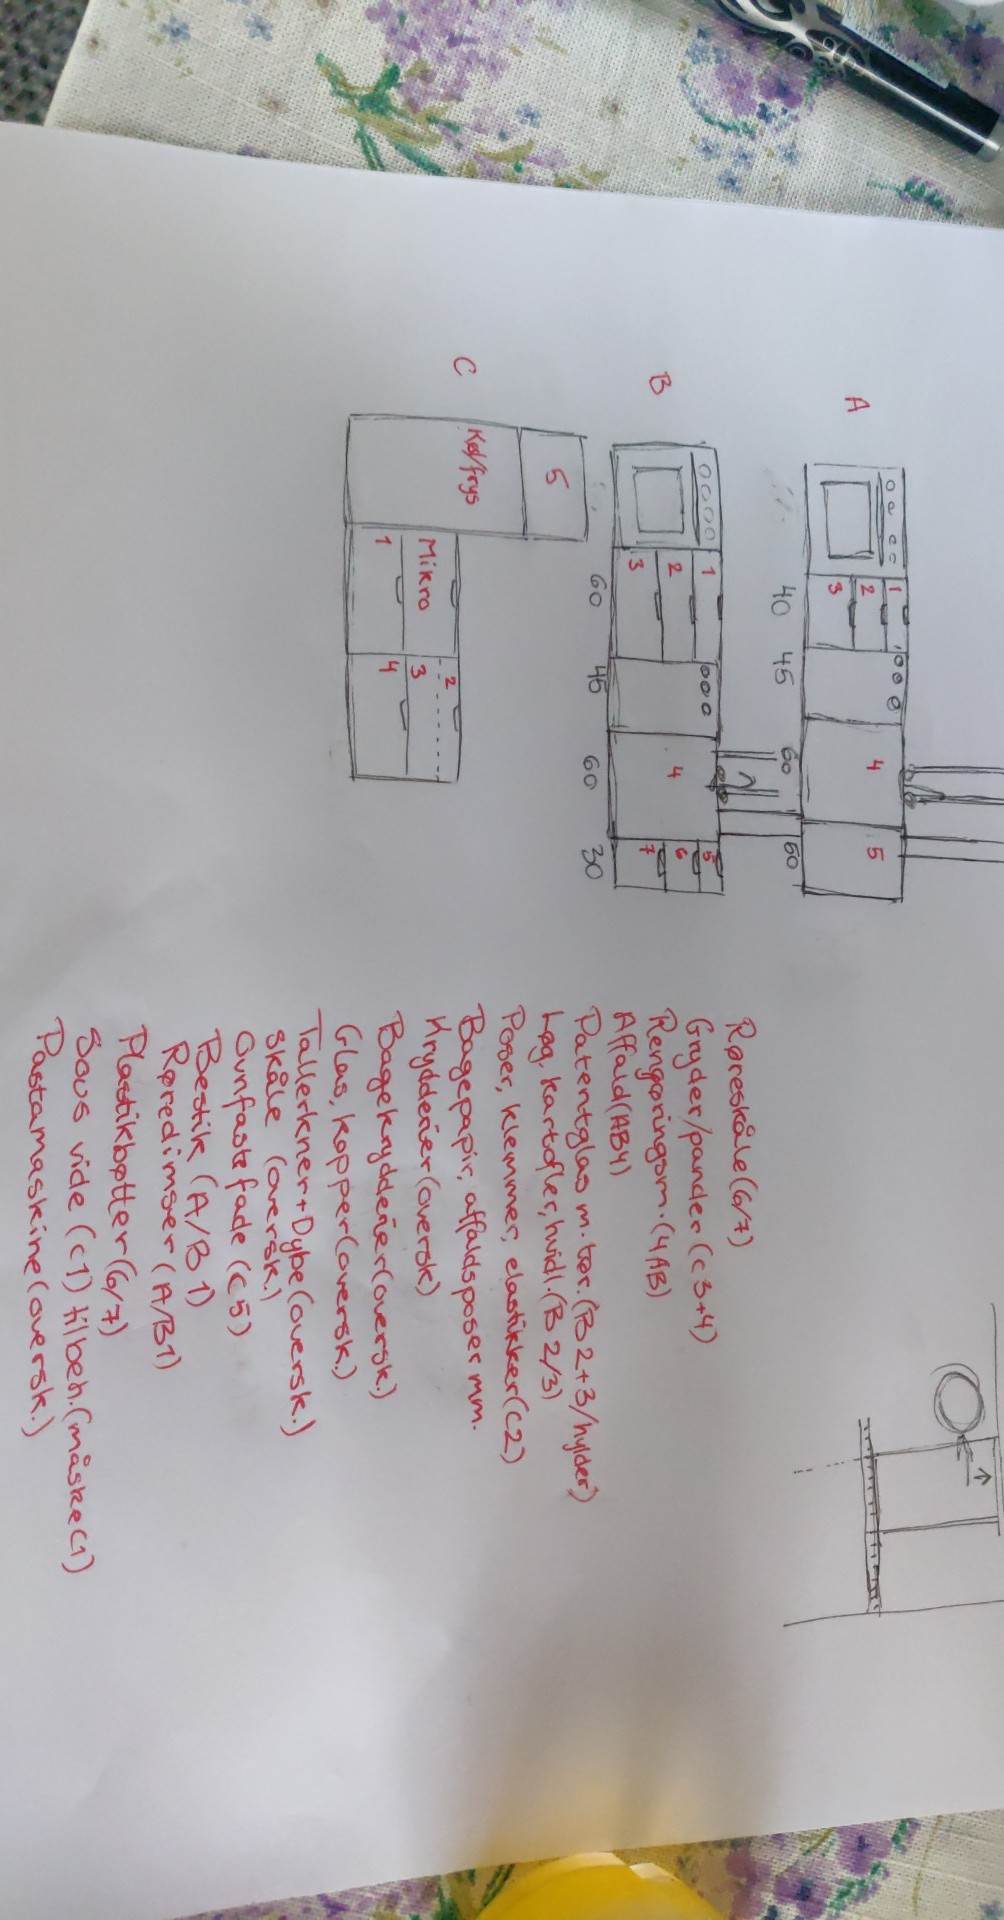 A
1
2
3
4
5
40
45
60
50
B
1
2
3
4
5
6
7
60
45
60
30
C
5
Køl/frys
Mikro
1
2
3
4
Røreskåle (6/7)
Gryder/pander (C3+4)
Rengøringsm. (4AB)
Affald (AB4)
Patentglas m. tør. (B2+3/hylder)
Løg, kartofler, hvidl. (B2/3)
Poser, klemmer, elastikker (C2)
Bagepapir, affaldsposer mm.
Krydderier (oversk)
Bagekrydderier (oversk.)
Glas, kopper (oversk.)
Tallerkner + Dybe (oversk.)
Skåle (oversk.)
Ovnfaste fade (C5)
Bestik (A/B 1)
Røredimser (A/B1)
Plastikbøtter (6/7)
Sous vide (C1) tilbeh. (måske C1)
Pastamaskine (oversk.)